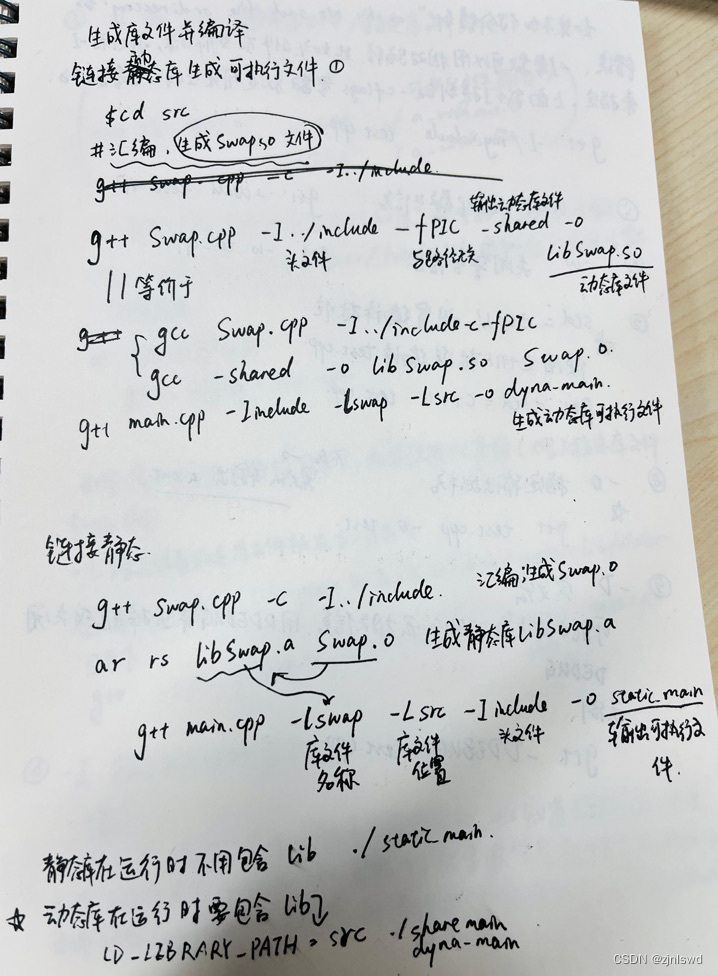 生成库文件并编译
链接动态库生成可执行文件①
$cd src
#汇编，生成Swap.so 文件
g++ swap cpp -c -I../include.
输出动态库文件
g++ Swap.cpp -I../include -fPIC -shared -o
头文件 与路径无关 libSwap.so
|| 等价于 动态库文件
gcc Swap.cpp -I../include-c-fPIC
gcc -shared -o libSwap.so Swap.o.
g++ main.cpp -Iinclude -lswap -Lsrc -o dyna-main.
生成动态库可执行文件
链接静态.
g++ swap.cpp -c -I../include. 汇编,生成Swap.o
ar rs libSwap.a Swap.o 生成静态库LibSwap.a
g++ main.cpp -Lswap -Lsrc -I include -o static_main
库文件名称 库文件位置 头文件 输出可执行文件.
静态库在运行时不用包含 lib ./static main.
☆ 动态库在运行时要包含lib
LD_LIBRARY_PATH = src ./share main
dyna-main
CSDN @zjnlswd